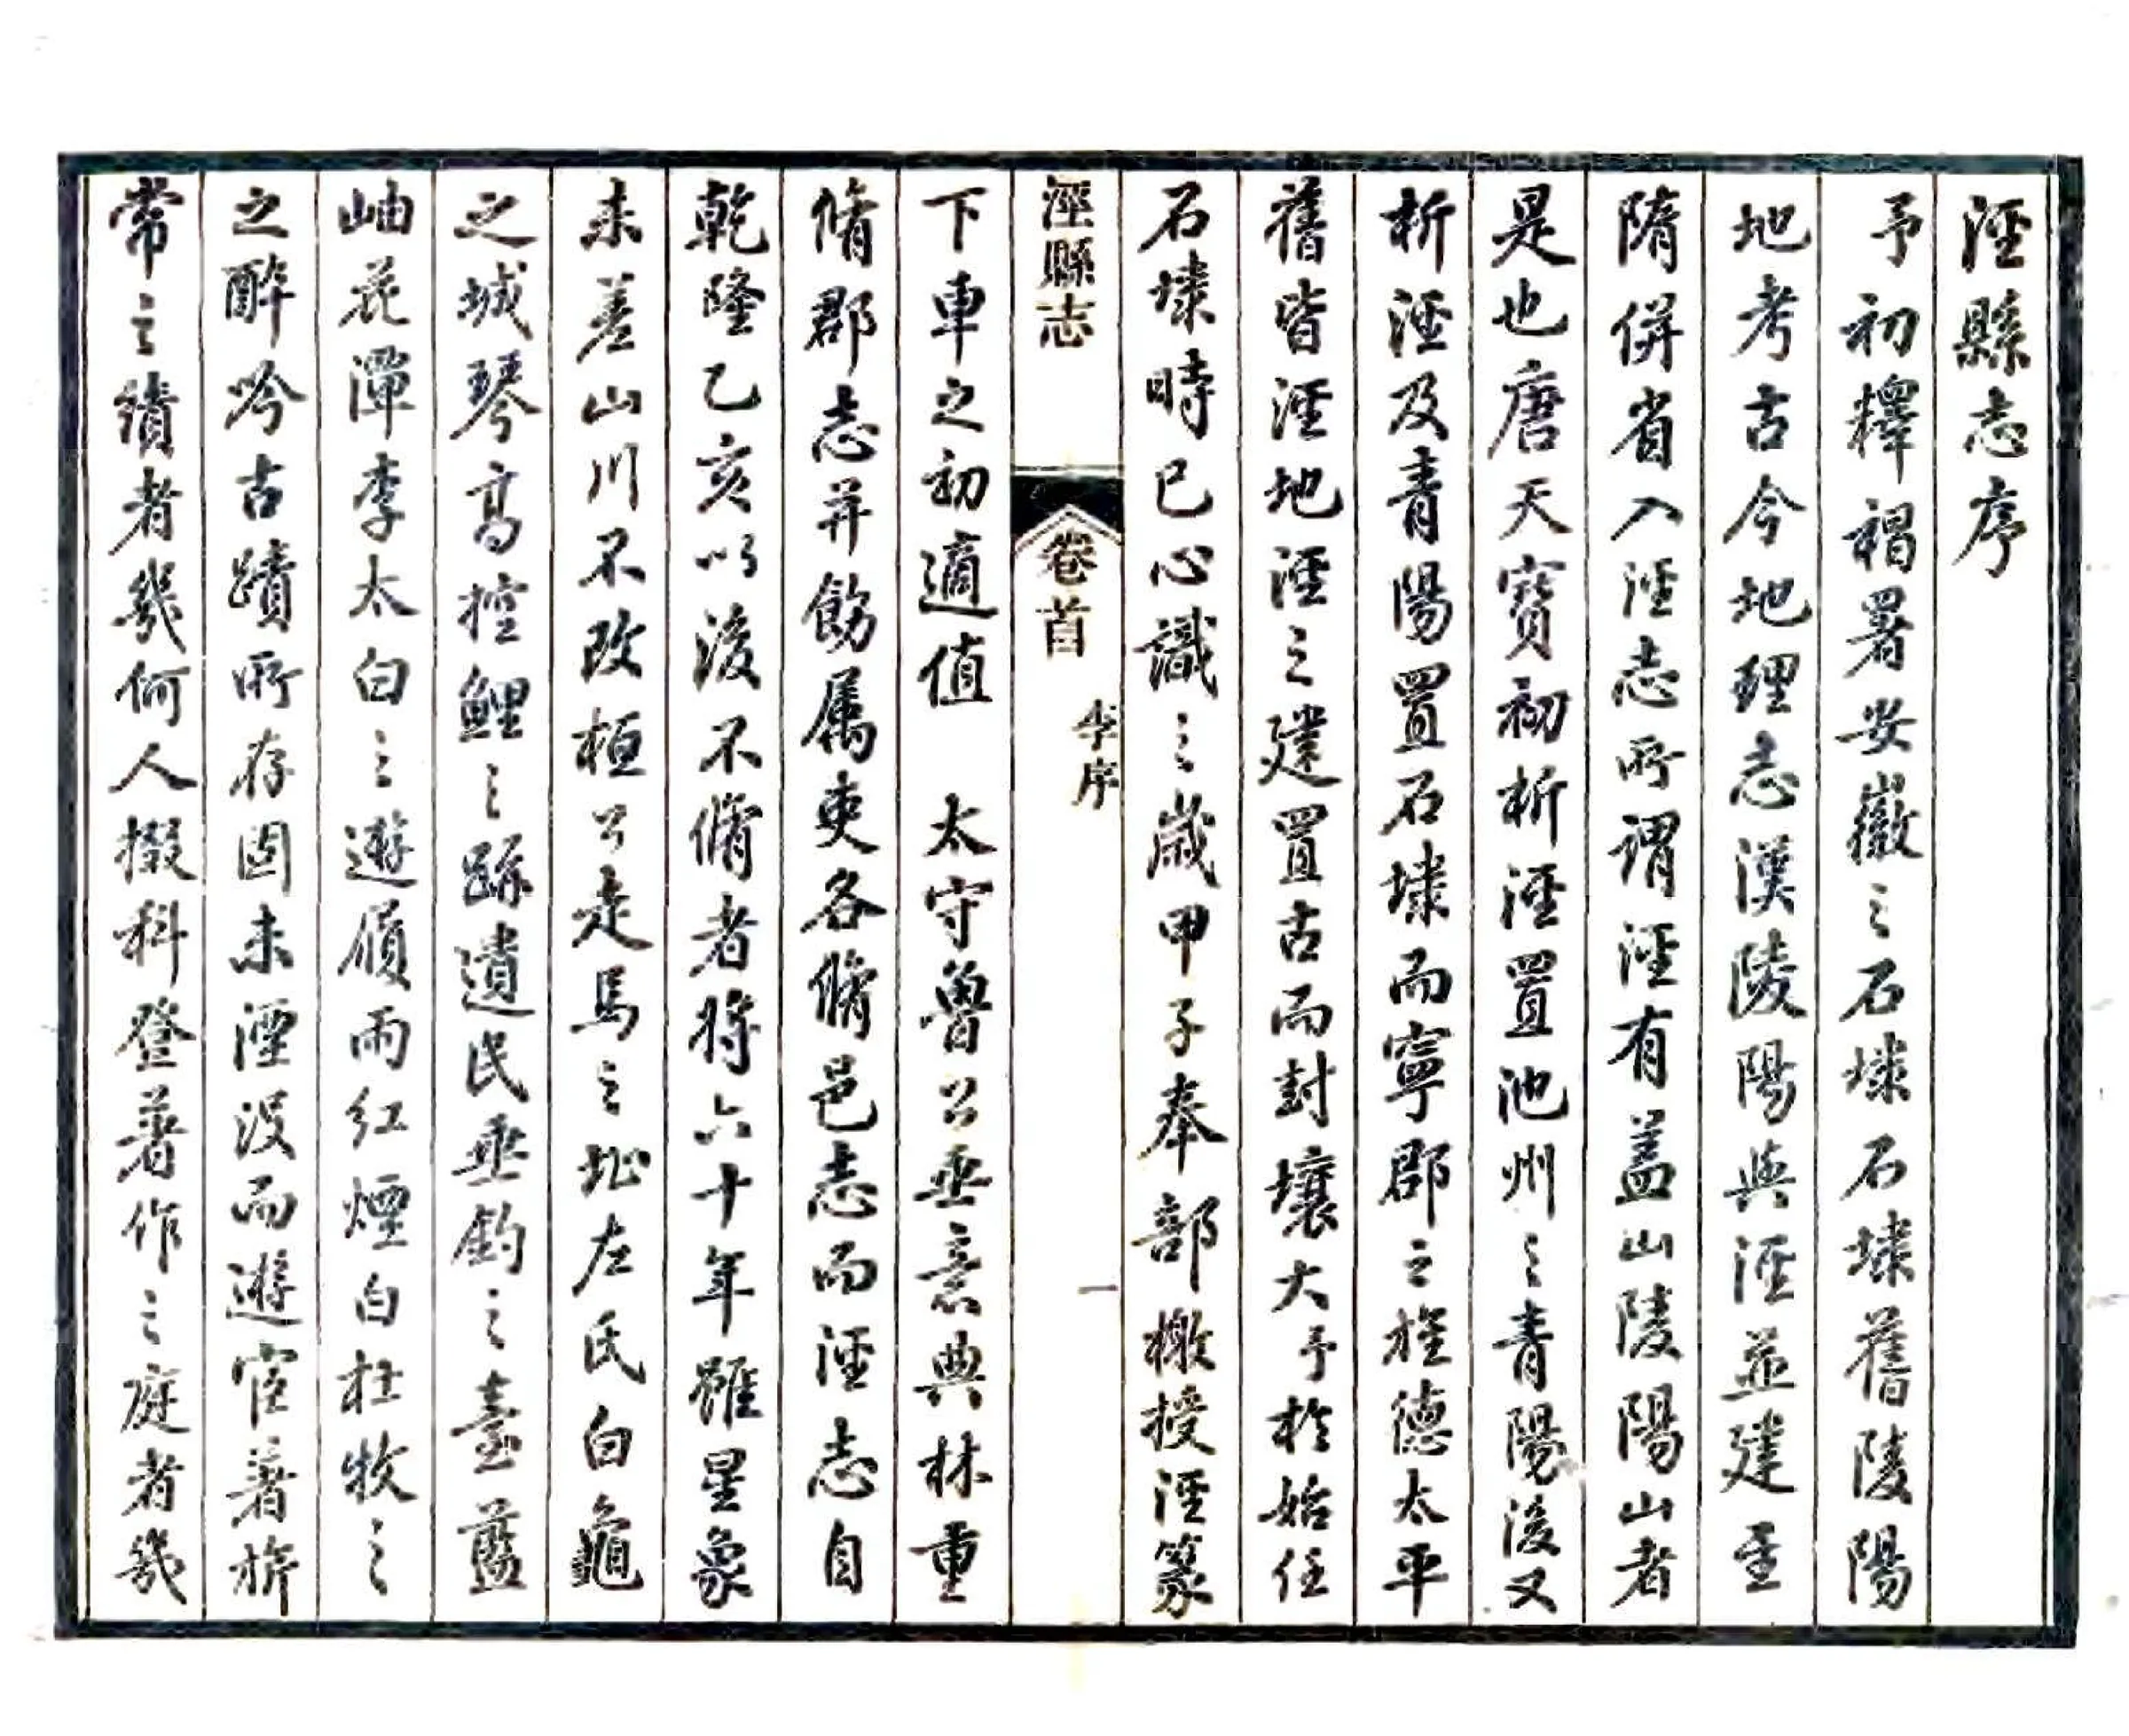 涇縣志序
予初釋褐署安徽之石埭石埭舊陵陽
地考古今地理志漢陵陽與涇並建至
隋併省入涇志所謂涇有蓋山陵陽山者
是也唐天寶初析涇置池州之青陽後又
析涇及青陽置石埭而寧郡之旌德太平
舊皆涇地涇之建置古而封壤大予於始任
石埭時已心識之歲甲子奉部檄授涇篆
涇縣志 卷首 李序 一
下車之初適值 太守魯公垂意典林重
脩郡志并飭属吏各脩邑志而涇志自
乾隆乙亥以後不脩者將六十年雖星象
未差山川不改桓公走馬之址左氏白龜
之城琴高控鯉之蹟遺民垂釣之臺藍
岫花潭李太白之遊屐雨紅煙白杜牧之
之醉吟古蹟所存固未湮没而遊宦著旂
常之績者幾何人掇科登著作之庭者幾